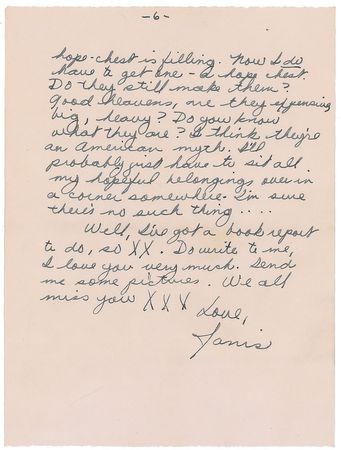 -6-
hope-chest is filling. Now I do
have to get one - a hope chest.
Do they still make them?
Good heavens, are they expensive,
big, heavy? Do you know
what they are? I think they're
an American myth. I'll
probably just have to sit all
my hopeful belongings over in
a corner somewhere. I'm sure
there's no such thing.....
Well, I've got a book report
to do, so XX. Do write to me,
I love you very much. Send
me some pictures. We all
miss you XXX Love,
Janis